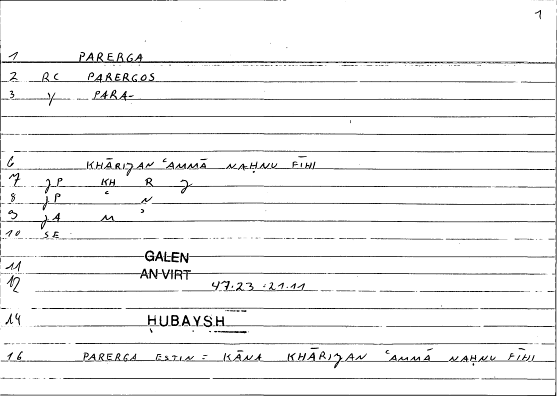 1
1 PARERGA
2 RC PARERGOS
3 Y PARA-
6 KHĀRIJAN ʿAMMĀ NAḤNU FĪHI
7 JP KH R J
8 JP ʿ N
9 JA M ʾ
10 SE
11 GALEN
12 AN VIRT 47.23 -21.11
14 ḤUBAYSH
16 PARERGA ESTIN = KĀNA KHĀRIJAN ʿAMMĀ NAḤNU FĪHI